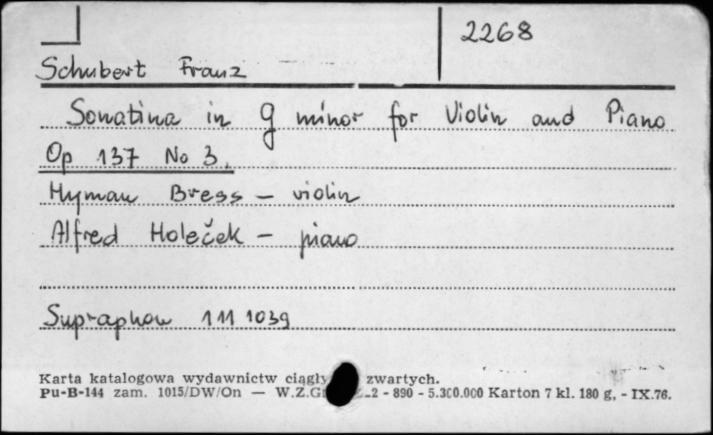 2268
Schubert Franz
Sonatina in g minor for Violin and Piano
Op 137 No 3.
Hyman Bress – violin
Alfred Holeček – piano
Supraphon 111 1039
Karta katalogowa wydawnictw zwartych.
Pu-B-144 zam. 1015/DW/On — 890 - 5.300.000 Karton 7 kl. 180 g. - IX.76.